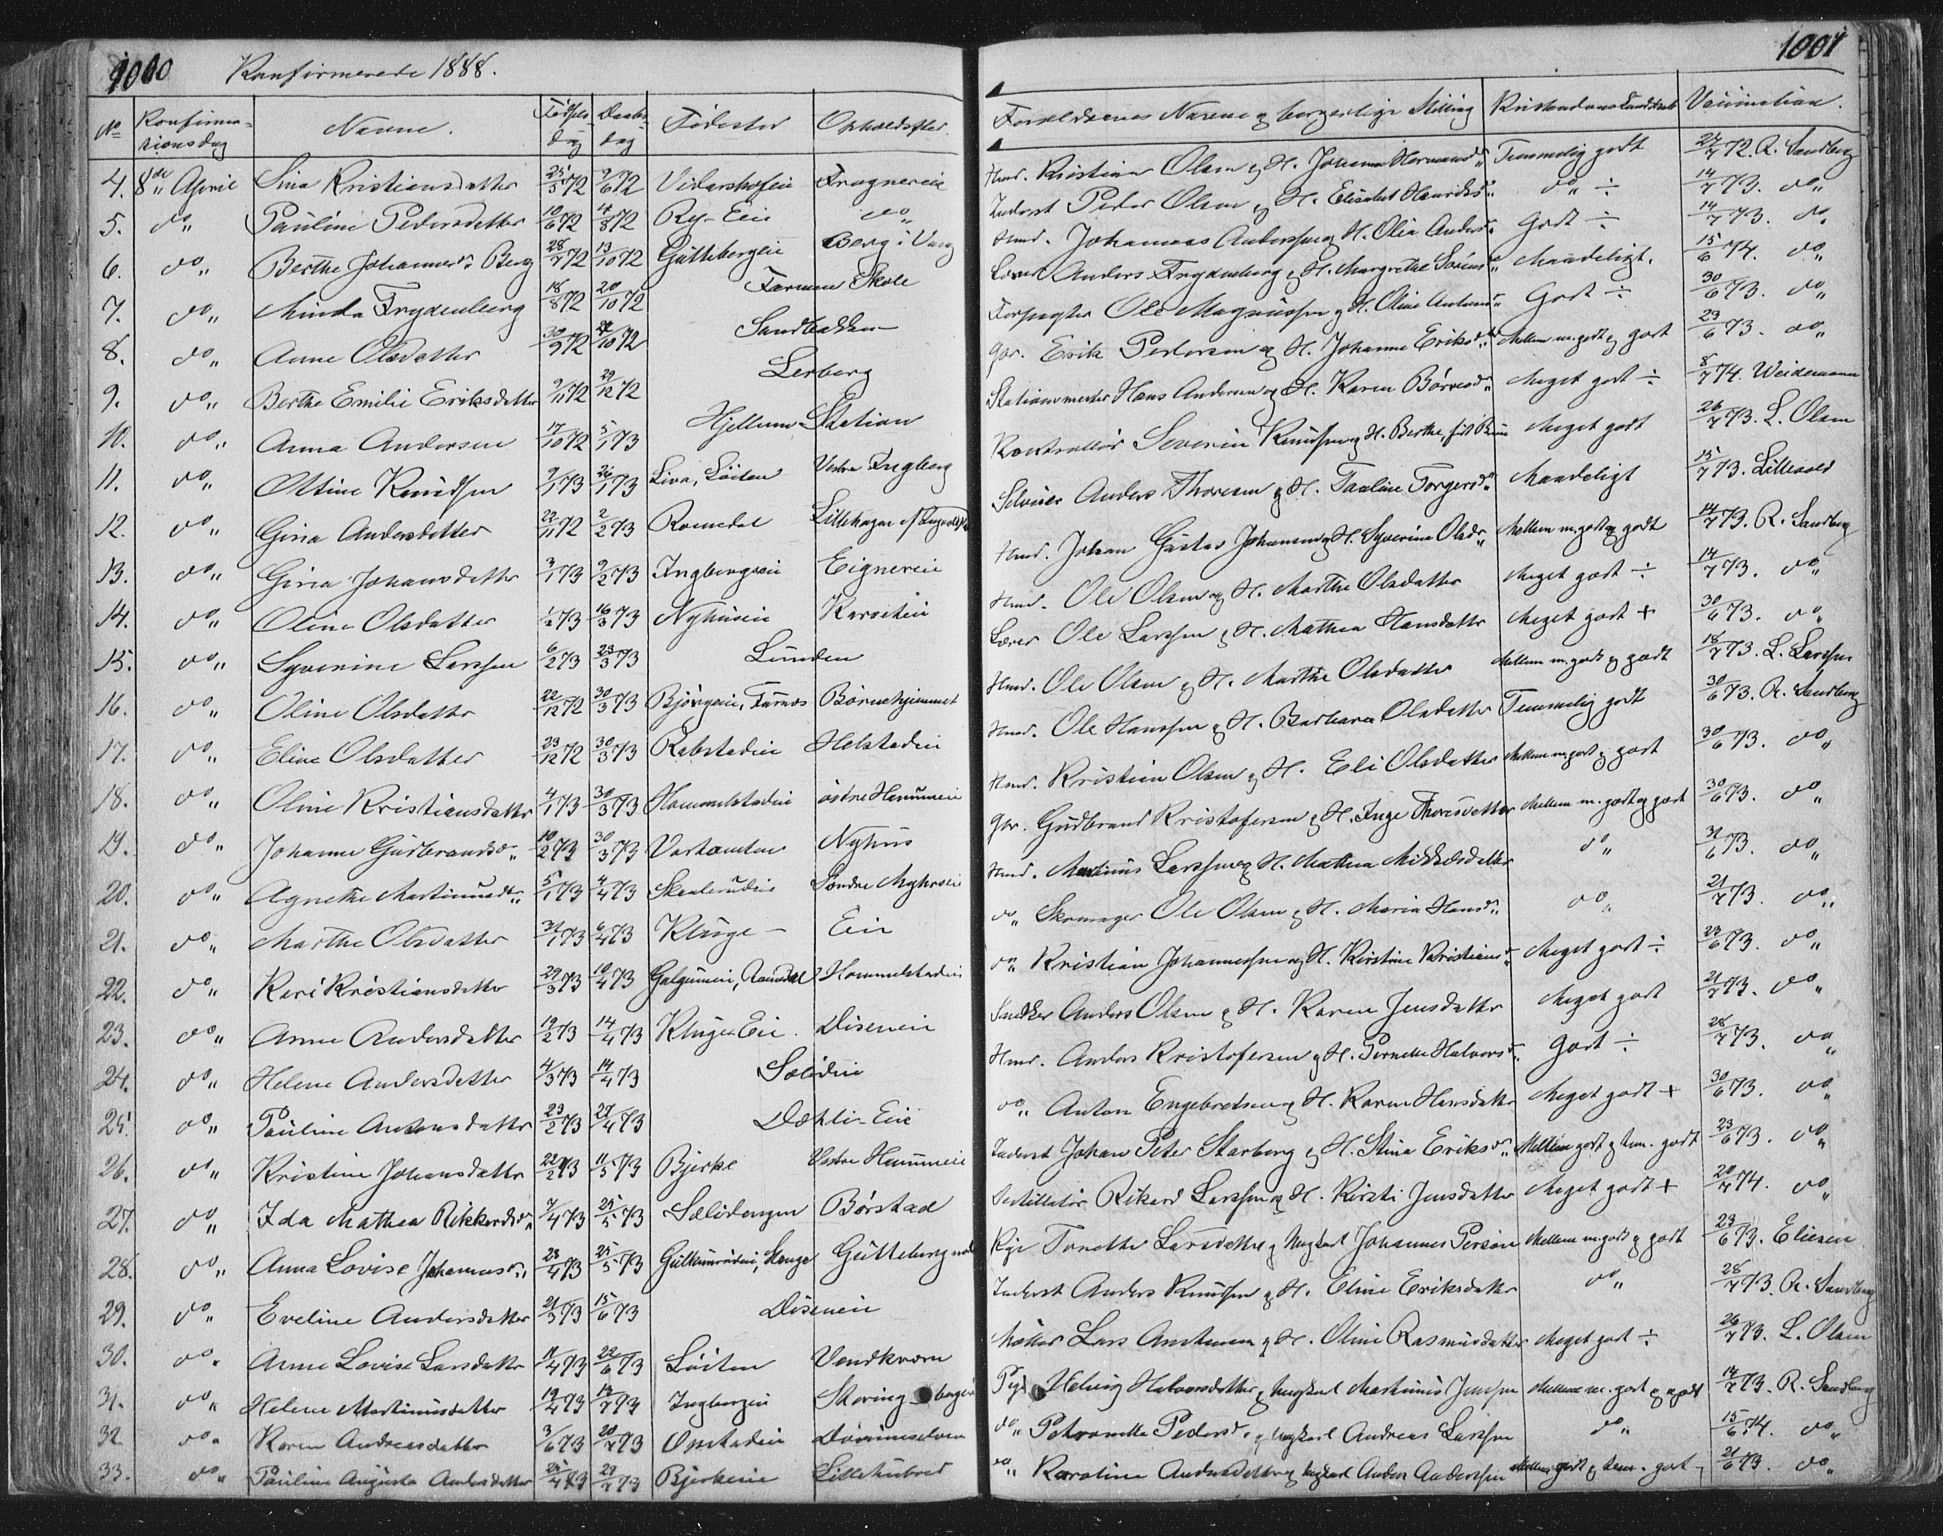 1000 Konfirmerede 1888.
No Konfirmationsdag Navne. Fødselsdag Daabsdag Fødested Opholdssted.
4. 8de April Sina Kristiansdatter 25/5 72 9/6 72 Vidarshofeie Frognereie
5. do„ Pauline Pedersdatter 10/6 72 4/8 72 Ry-Eie do„
6. do„ Berthe Johannesd. Berg 28/7 72 13/10 72 Guttebergeie Berg i Vang
7. do„ Minda Frydenberg 18/8 72 20/10 72 Farmen Skole
8. do„ Anne Olsdatter 30/9 72 /10 72 Sandbakken
9. do„ Berthe Emilie Eriksdatter 9/11 72 29/12 72 Lerberg
10. do„ Anna Andersen 17/10 72 5/1 73 Hjellum Station
11. do„ Ottine Knudsen 9/1 73 26/1 73 Løiten Vestre Ingberg
12. do„ Gina Andersdatter 22/11 72 2/2 73 Romedal Lillehagen
13. do„ Gina Johansdatter 3/1 73 9/2 73 Ingbergseie Eignereie
14. do„ Oline Olsdatter 1/2 73 16/3 73 Nyhuseie
15. do„ Syverine Larssen 6/2 73 23/3 73 Lunden
16. do„ Oline Olsdatter 22/12 72 30/3 73 Bjørgeeie, Furnæs Børnehjemmet
17. do„ Eline Olsdatter 23/12 72 30/3 73 Rabstadeie Helstadeie
18. do„ Oline Kristiansdatter 4/1 73 30/3 73 Hommelstadeie østre Hummeie
19. do„ Johanne Gudbrandsd„ 10/2 73 30/3 73 Nyhus
20. do„ Agnethe Martinusdtr„ 5/1 73 4/4 73 Skaalerudeie Søndre Myhrseie
21. do„ Marthe Olsdatter 31/1 73 6/4 73 Kluge - Eie
22. do„ Kari Kristiansdatter 29/3 73 10/4 73 Romedal Hommelstadeie
23. do„ Anne Andersdatter 19/2 73 14/4 73 Kluge-Eie Diseneie
24. do„ Helene Andersdatter 4/3 73 14/4 73 Sælideie
25. do„ Pauline Antonsdatter 23/2 73 27/4 73 Dæhli-Eie
26. do„ Kristine Johansdatter 22/2 73 11/5 73 Bjerke Vestre Hummeie
27. do„ Ida Mathea Rikkardsd„ 7/4 73 25/5 73 Sælidengen Børstad
28. do„ Anna Lovise Johannesd„ 23/4 73 25/5 73 Stange Gutteberg
29. do„ Eveline Andersdatter 21/3 73 15/6 73 Diseneie
30. do„ Anne Lovise Larsdatter 11/4 73 22/6 73 Løiten Vendkvern
31. do„ Helene Martinusdatter 19/4 73 14/7 73 Ingbergeie
32. do„ Karen Andreasdatter 3/6 73 20/7 73 Ønstadeie
33. do„ Pauline Augusta Andersdatter 25/4 73 27/7 73 Bjerkeeie Lillehubred
1001
Forældrenes Navne og borgerlige Stilling Kristendomskundskab Vaccination.
Hmd. Kristian Olsen og H. Johanne Hermansd„ Temmelig godt 24/7 72. R. Sandberg
Inderst Peder Olsen og H. Elisabet Henriksd„ do„ ÷ 14/7 73. do„
Hmd. Johannes Anderssen og H. Olea Andersd„ Godt ÷ 14/7 73. do„
Lærer Anders Frydenberg og H. Margrethe Sørensd„ Maadeligt. 15/6 74. do„
Forpagter Ole Magnussen og H. Oline Antonsd„ Godt ÷ 30/6 73. do„
Gbr. Erik Pedersen og H. Johanne Eriksd„ Mellem m. godt og godt 23/6 73. do„
Stationsmester Hans Andersen og H. Karen Børresd„ Meget godt ÷ 8/7 74. Weidemann
Kontrollør Severin Knudsen og H. Berthe, født Meget godt 26/7 73. L. Olsen
Selveier Anders Thoresen og H. Pauline Torgersd„ Maadeligt 15/7 73. Lillevold
Hmd. Johan Gustav Johansen og H. Syverine Olsdr„ Mellem m. godt og godt 14/7 73. R. Sandberg
Hmd. Ole Olsen og H. Marthe Olsdatter Meget godt ÷ 14/7 73. do„
Lærer Ole Larssen og H. Mathea Hansdatter Meget godt + 30/6 73. do„
Hmd. Ole Olsen og H. Marthe Olsdatter Mellem m. godt og godt 18/7 73. L. Larssen
Hmd. Ole Hanssen og H. Barbara Olsdatter Temmelig godt 30/6 73. R. Sandberg
Hmd. Kristian Olsen og H. Eli Olsdatter Mellem m. godt og godt 30/6 73. do„
Gbr. Gudbrand Kristofersen og H. Inge Thoresdatter Mellem m. godt og godt 30/6 73. do„
Hmd. Martinus Larssen og H. Mathea Mikkelsdatter do„ /6 73. do„
do„ Skomager Ole Olsen og H. Maria Hansd„ do„ 21/7 73. do„
do„ Kristian Johannessen og H. Kirstine Kristiansd„ Meget godt ÷ 23/6 73. do„
Snedker Anders Olsen og H. Karen Jensdatter Meget godt 21/7 73. do„
Hmd. Anders Kristofersen og H. Pernelle Halvorsd„ Godt ÷ 28/7 73. do„
do„ Anton Engebretsen og H. Karen Hansdatter Meget godt + 30/6 73. do„
Inderst Johan Peter Starberg og H. Stina Eriksd„ Mellem godt og tem. godt 23/6 73. do„
Destillatør Rikard Larssen og H. Kirsti Jensdatter Meget godt + 20/7 74. do„
Pige Tonette Larsdatter og Ungkarl Johannes Persøn Mellem m. godt og godt 23/6 73. Eliesen
Inderst Anders Knudsen og H. Eline Eriksdatter do„ 28/7 73. R. Sandberg
Møller Lars Amundsen og H. Oline Rasmusdatter Meget godt ÷ 26/7 73. L. Olsen
Pige Helvig Halvorsdatter og Ungkarl Martinus Jenssen Mellem m. godt og godt 14/7 73. R. Sandberg
do„ Petronelle Pedersd. og Ungkarl Andreas Larssen do„ 15/6 74. do„
do„ Karoline Andersdatter og Ungkarl Anders Anderssen Mellem godt og tem. godt 21/6 73. do„